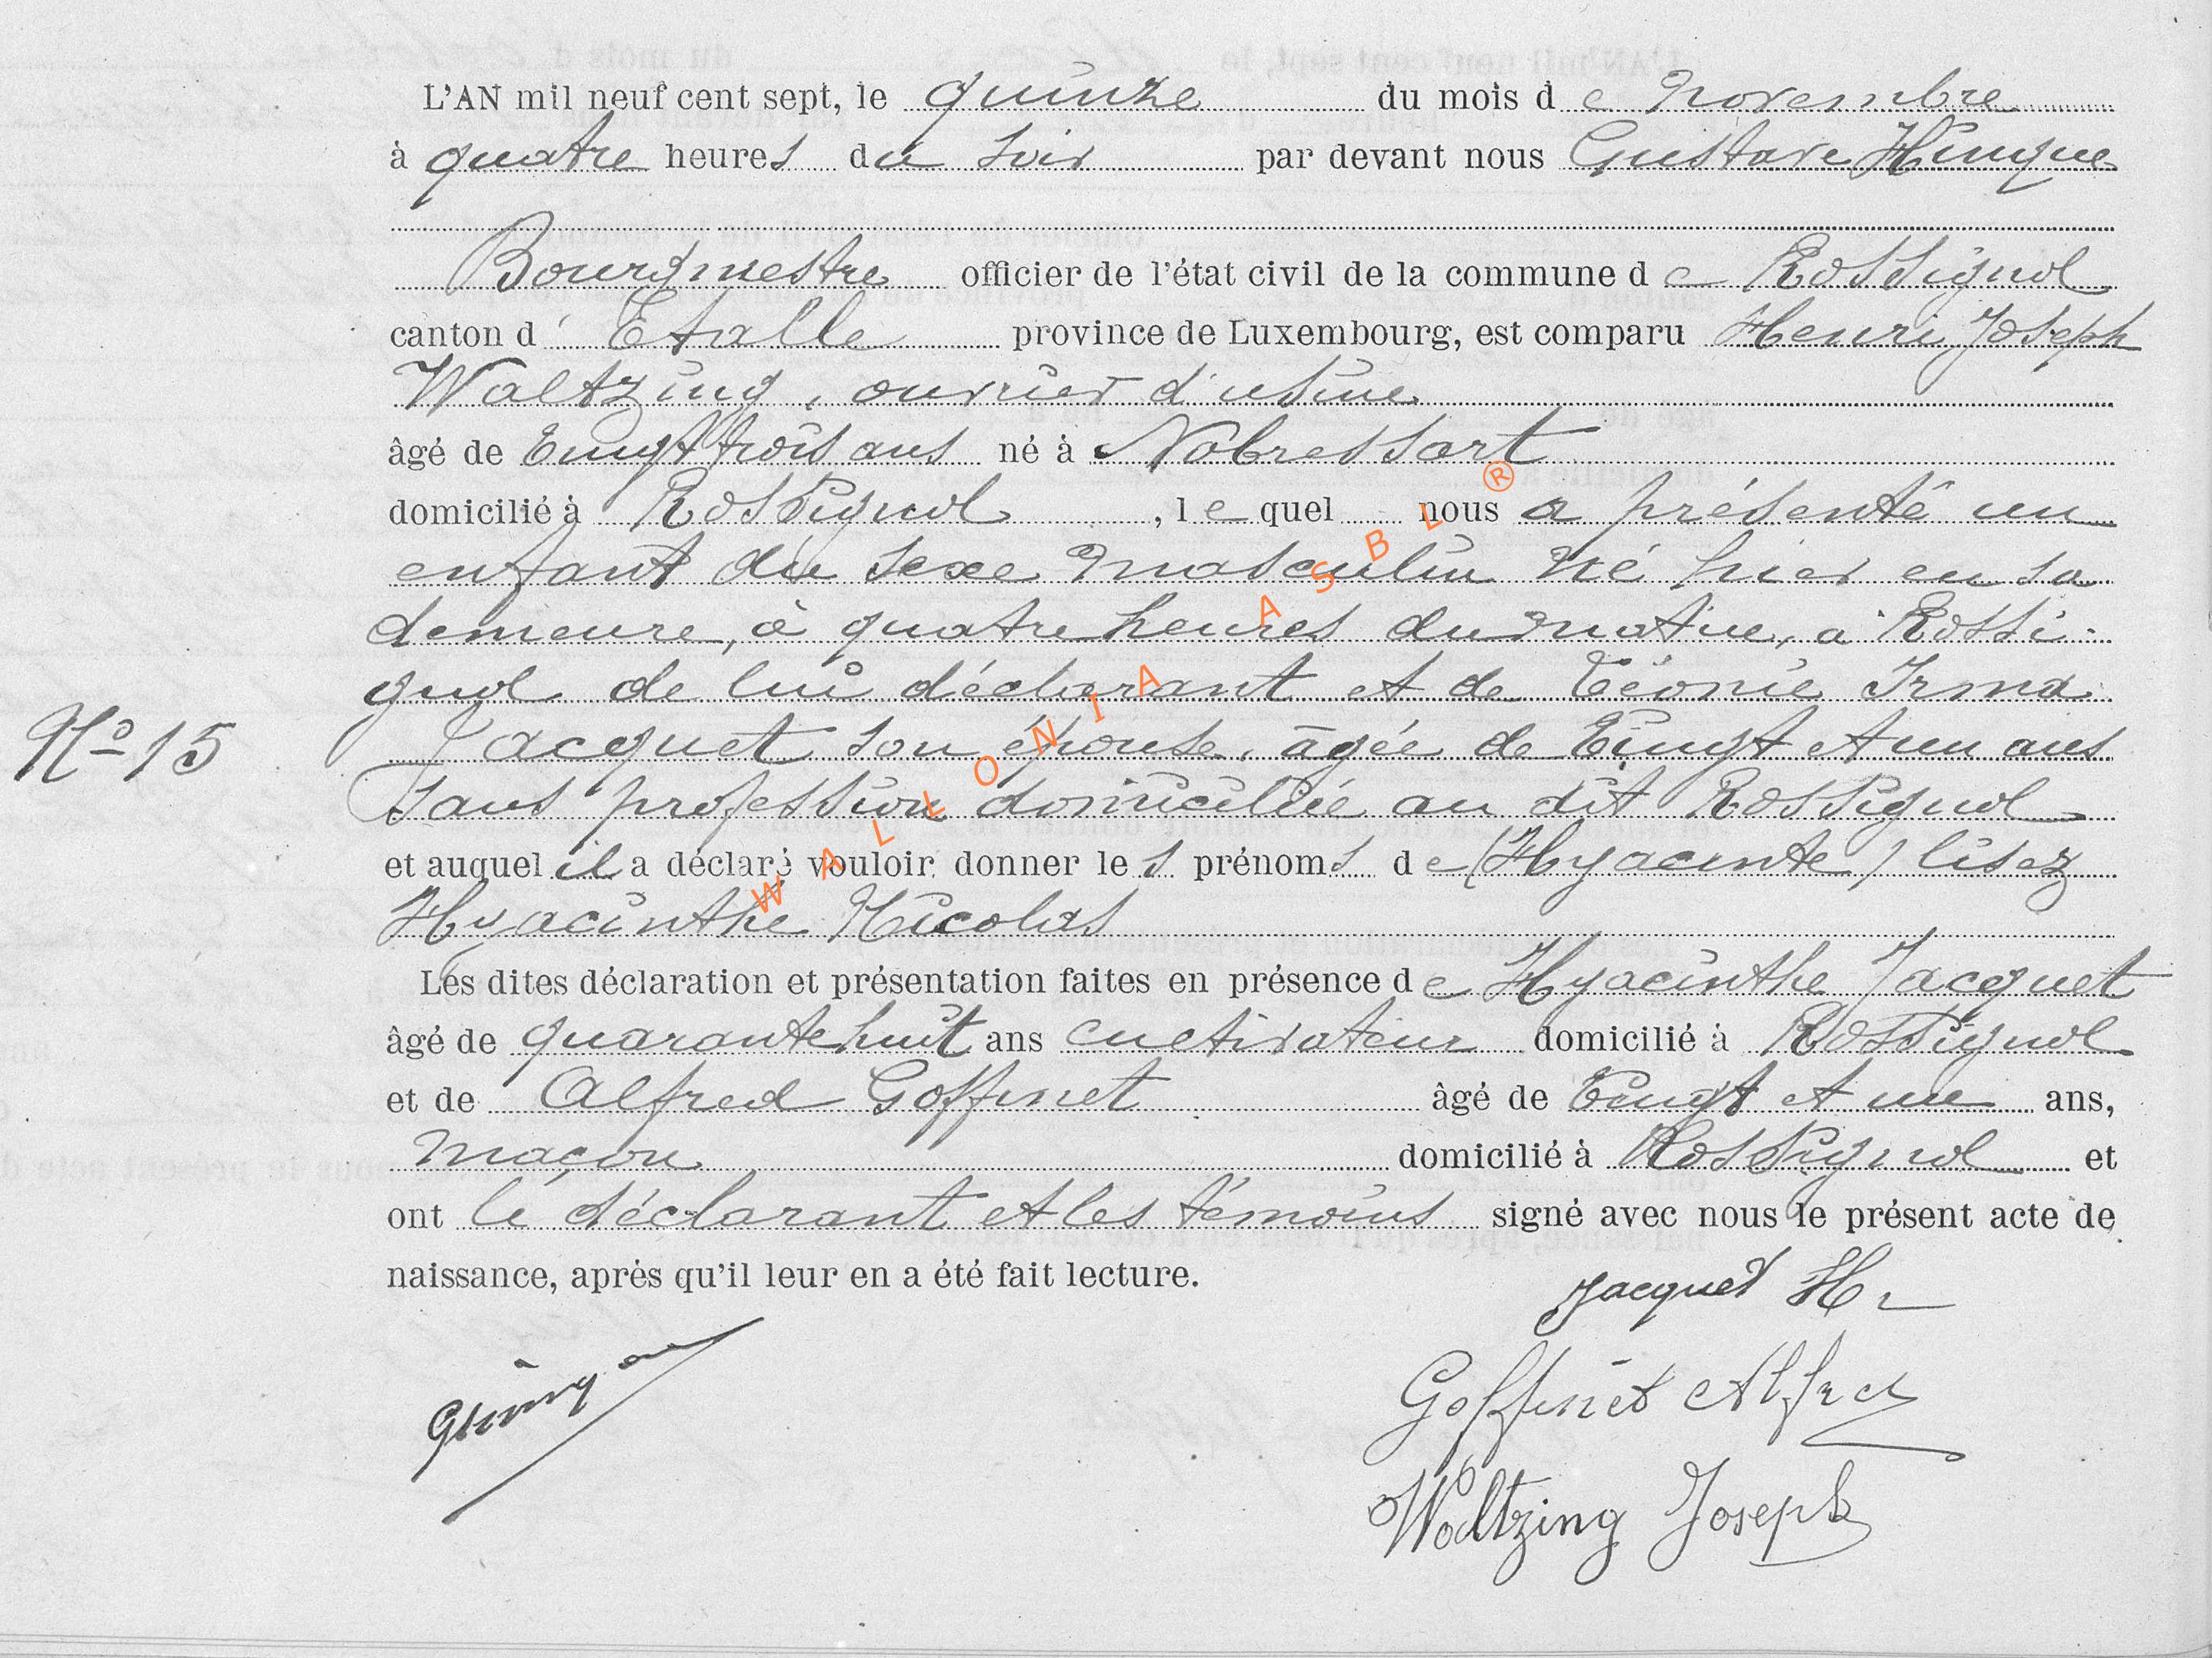 L'AN mil neuf cent sept, le quinze du mois de Novembre
à quatre heures du soir par devant nous Gustave Hinque
Bourgmestre officier de l'état civil de la commune de Rossignol
canton d'Etalle province de Luxembourg, est comparu Henri Joseph
Waltzing, ouvrier d'usine
âgé de Vingt trois ans né à Nobressart
domicilié à Rossignol, lequel nous a présenté un
enfant du sexe Masculin né hier en sa
demeure, à quatre heures du matin, à Rossi-
gnol de lui déclarant et de Léonie Irma
N° 15
Jacquet son épouse, âgée de Vingt et un ans
sans profession domiciliée au dit Rossignol
et auquel il a déclaré vouloir donner les prénoms de (Hyacinte) lisez
Hyacinthe Nicolas
Les dites déclaration et présentation faites en présence de Hyacinthe Jacquet
âgé de quarante huit ans cultivateur domicilié à Rossignol
et de Alfred Goffinet âgé de Vingt et un ans,
Maçon domicilié à Rossignol et
ont le déclarant et les témoins signé avec nous le présent acte de
naissance, après qu'il leur en a été fait lecture.
Jacquet H
Goffinet Alfred
Waltzing Joseph
WALLONIA ASBL ®